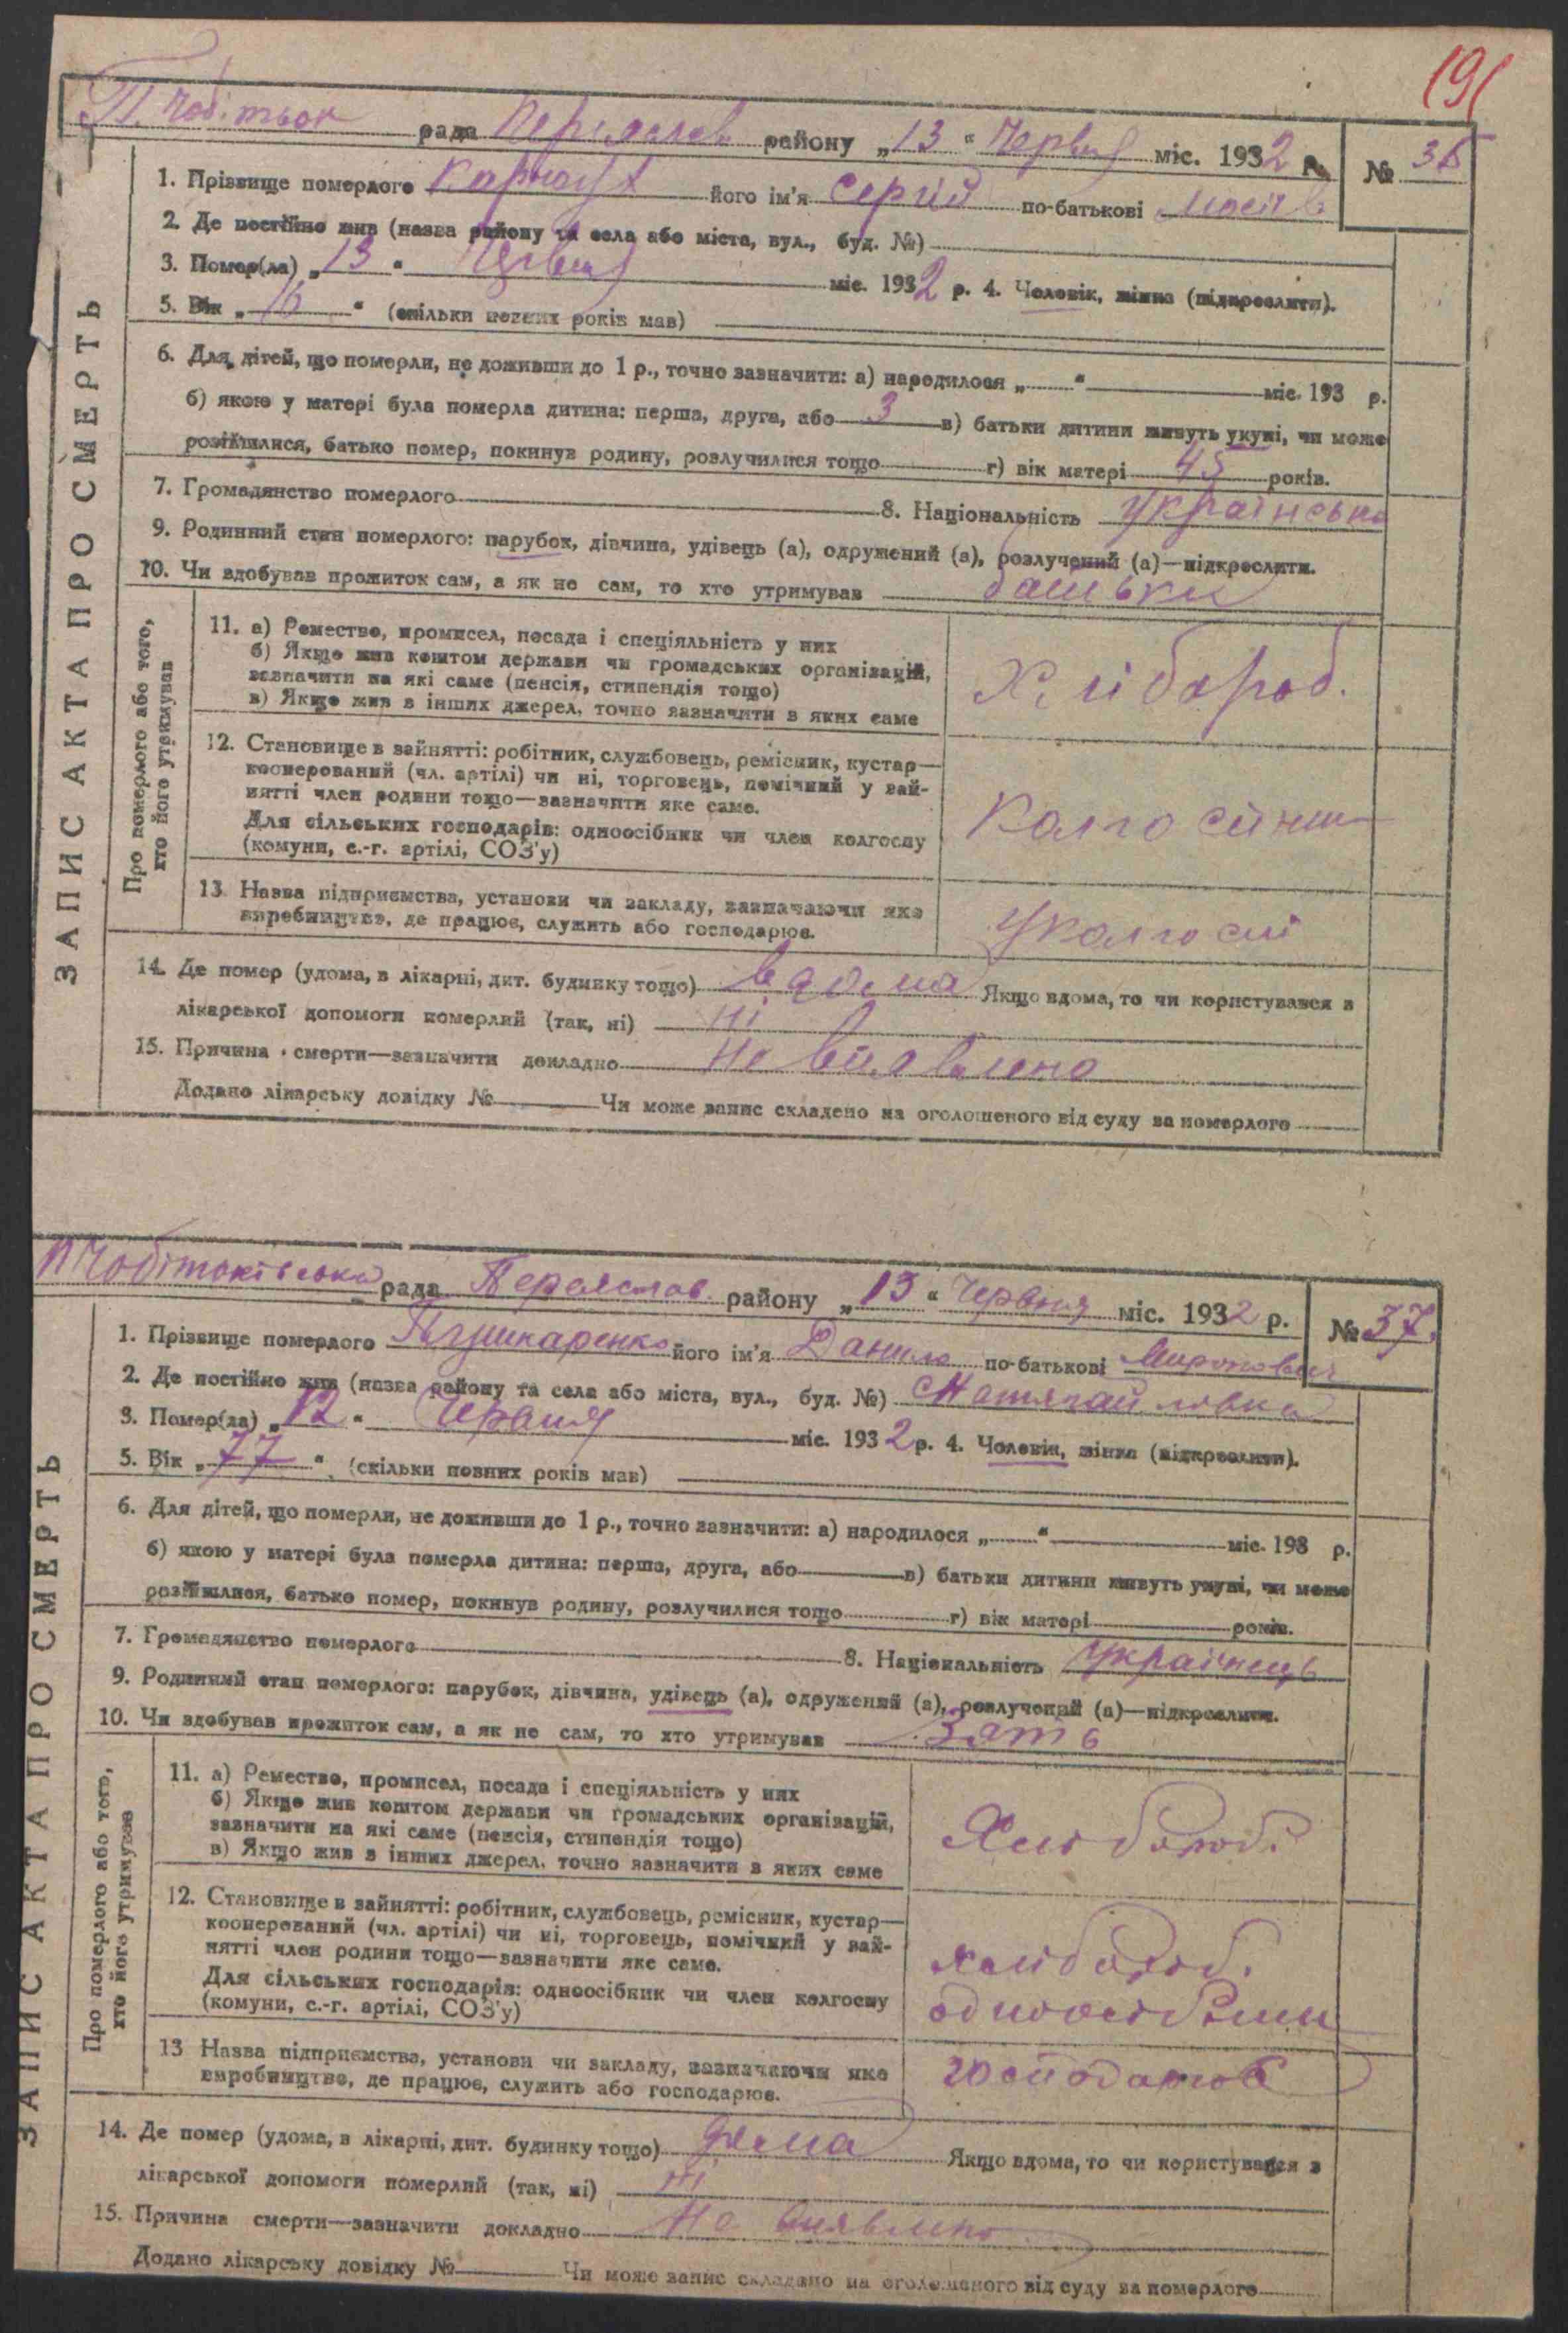 191
П. Чобітьок рада Переяслав району „13“ Червня міс. 1932 р. № 36
1. Прізвище померлого Карнаух його ім'я Сергій по-батькові
2. Де постійно жив (назва району та села або міста, вул., буд. №)
3. Помер(ла) „13“ Червня міс. 1932 р. 4. Чоловік, жінка (підкреслити).
5. Вік „16“ (скільки повних років мав)
6. Для дітей, що померли, не доживши до 1 р., точно зазначити: а) народилося „ “ міс. 193 р.
б) якою у матері була померла дитина: перша, друга, або 3 в) батьки дитини живуть укупі, чи може
розійшлися, батько помер, покинув родину, розлучилися тощо г) вік матері 45 років.
7. Громадянство померлого 8. Національність Українська
9. Родинний стан померлого: парубок, дівчина, удівець (а), одружений (а), розлучений (а)—підкреслити.
10. Чи здобував прожиток сам, а як не сам, то хто утримував батьки
ЗАПИС АКТА ПРО СМЕРТЬ
Про померлого або того,
хто його утримував
11. а) Ремество, промисел, посада і спеціяльність у них
б) Якщо жив коштом держави чи громадських організацій,
зазначити на які саме (пенсія, стипендія тощо)
в) Якщо жив з інших джерел, точно зазначити з яких саме
Хлібороб.
12. Становище в зайнятті: робітник, службовець, ремісник, кустар—
кооперований (чл. артілі) чи ні, торговець, помічний у зай-
нятті член родини тощо—зазначити яке саме.
Для сільських господарів: одноосібник чи член колгоспу
(комуни, с.-г. артілі, СОЗ'у)
13. Назва підприємства, установи чи закладу, зазначаючи яке
виробництво, де працює, служить або господарює.
У колгоспі
14. Де помер (удома, в лікарні, дит. будинку тощо) вдома Якщо вдома, то чи користувався з
лікарської допомоги померлий (так, ні) ні
15. Причина смерти—зазначити докладно Не виявлено
Додано лікарську довідку № Чи може запис складено на оголошеного від суду за померлого
П Чобітоківська рада Переяслав. району „13“ Червня міс. 1932 р. № 37.
1. Прізвище померлого Пушкаренко його ім'я Данило по-батькові Миронович
2. Де постійно жив (назва району та села або міста, вул., буд. №)
3. Помер(ла) „12“ Червня міс. 1932 р. 4. Чоловік, жінка (підкреслити).
5. Вік „77“ (скільки повних років мав)
6. Для дітей, що померли, не доживши до 1 р., точно зазначити: а) народилося „ “ міс. 193 р.
б) якою у матері була померла дитина: перша, друга, або в) батьки дитини живуть укупі, чи може
розійшлися, батько помер, покинув родину, розлучилися тощо г) вік матері років.
7. Громадянство померлого 8. Національність Українець
9. Родинний стан померлого: парубок, дівчина, удівець (а), одружений (а), розлучений (а)—підкреслити.
10. Чи здобував прожиток сам, а як не сам, то хто утримував Зять
ЗАПИС АКТА ПРО СМЕРТЬ
Про померлого або того,
хто його утримував
11. а) Ремество, промисел, посада і спеціяльність у них
б) Якщо жив коштом держави чи громадських організацій,
зазначити на які саме (пенсія, стипендія тощо)
в) Якщо жив з інших джерел, точно зазначити з яких саме
Хлібороб.
12. Становище в зайнятті: робітник, службовець, ремісник, кустар—
кооперований (чл. артілі) чи ні, торговець, помічний у зай-
нятті член родини тощо—зазначити яке саме.
Для сільських господарів: одноосібник чи член колгоспу
(комуни, с.-г. артілі, СОЗ'у)
хлібороб.
13 Назва підприємства, установи чи закладу, зазначаючи яке
виробництво, де працює, служить або господарює.
господарює
14. Де помер (удома, в лікарні, дит. будинку тощо) Дома Якщо вдома, то чи користувався з
лікарської допомоги померлий (так, ні) ні
15. Причина смерти—зазначити докладно Не виявлено
Додано лікарську довідку № Чи може запис складено на оголошеного від суду за померлого